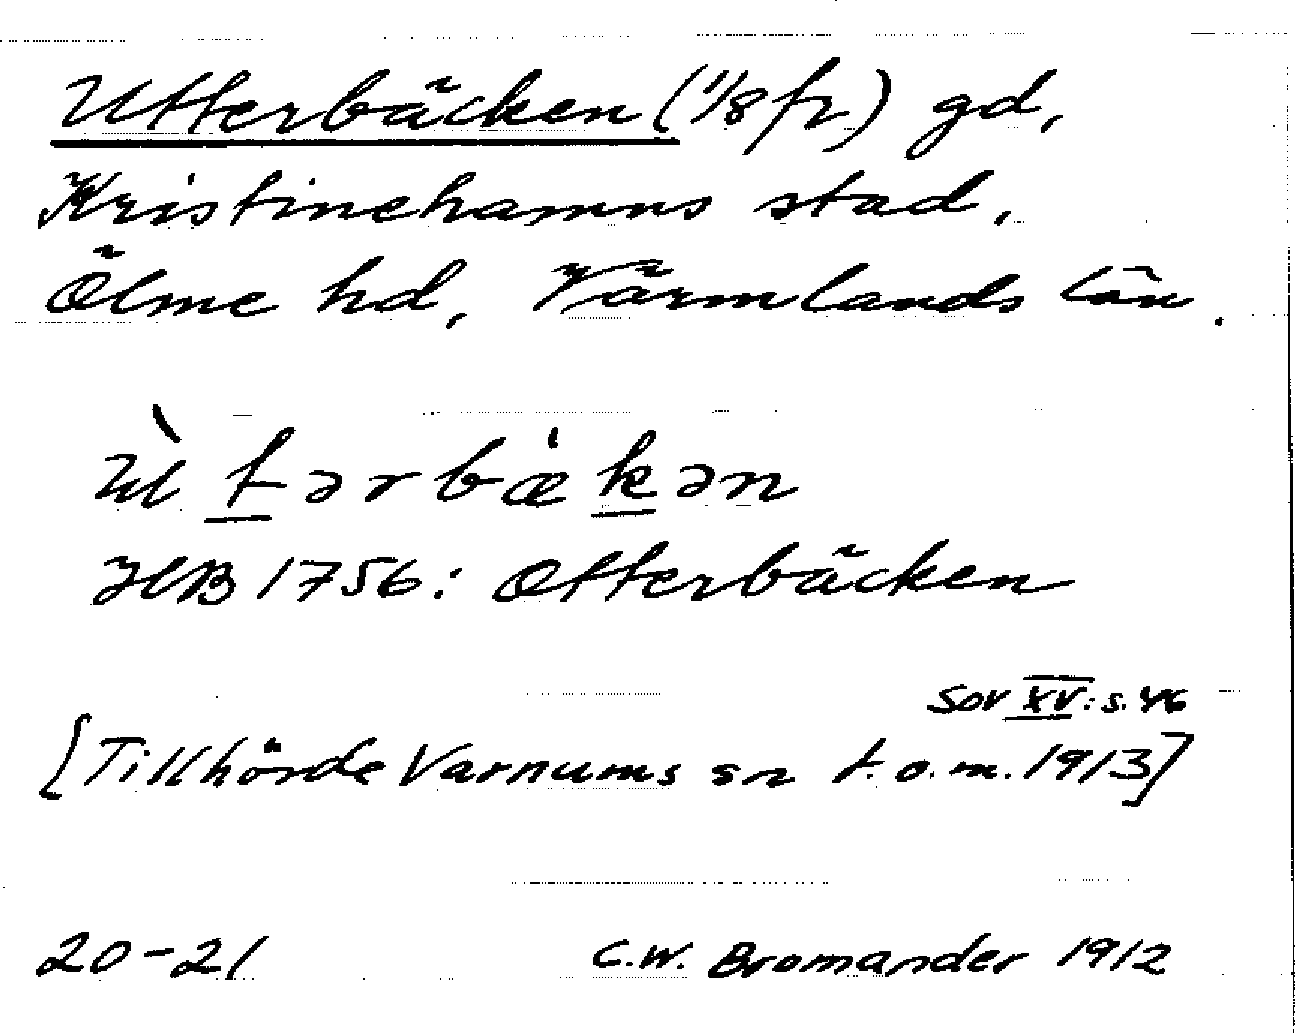 Utterbäcken (1/8 fr) gd,
Kristinehamns stad,
Ölme hd, Värmlands län.
ùtərbæ̀kən
HB 1756: Otterbäcken
SOV XV: s. 46
[Tillhörde Varnums sn t.o.m. 1913]
20-21 C.W. Bromander 1912